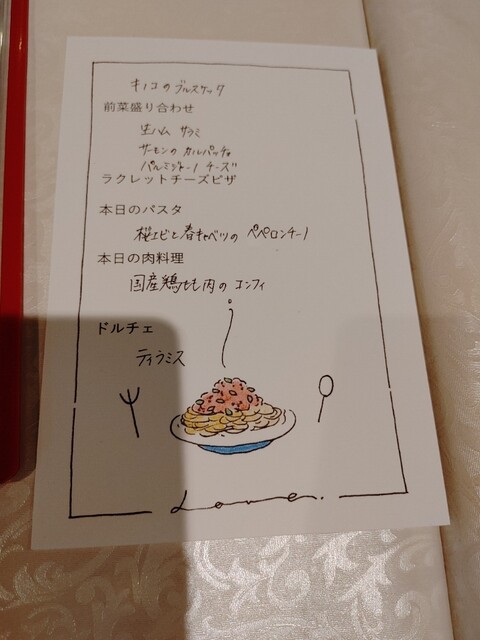 キノコのブルスケッタ
前菜盛り合わせ
生ハム サラミ
サーモンの カルパッチョ
パルミジャーノ チーズ
ラクレットチーズピザ
本日のパスタ
桜エビと春キャベツの ペペロンチーノ
本日の肉料理
国産鶏もも肉の コンフィ
ドルチェ
ティラミス
Love.